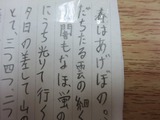 春はあけぼの。
だちたる雲の細く
闇もなほ、蛍の
にうち光りて行く
夕日の差して山の
とて、三つ四つ、二つ